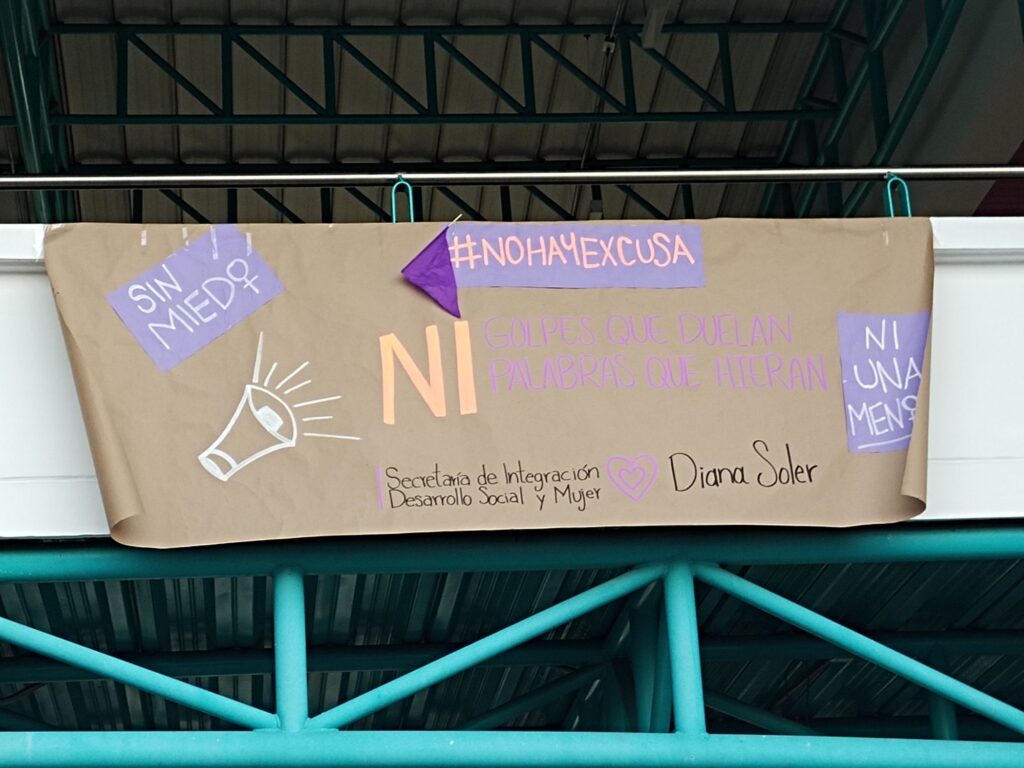 SIN
MIEDO
#NOHAYEXCUSA
NI
GOLPES QUE DUELAN
PALABRAS QUE HIERAN
NI
UNA
MENO
Secretaría de Integración
Desarrollo Social y Mujer
Diana Soler